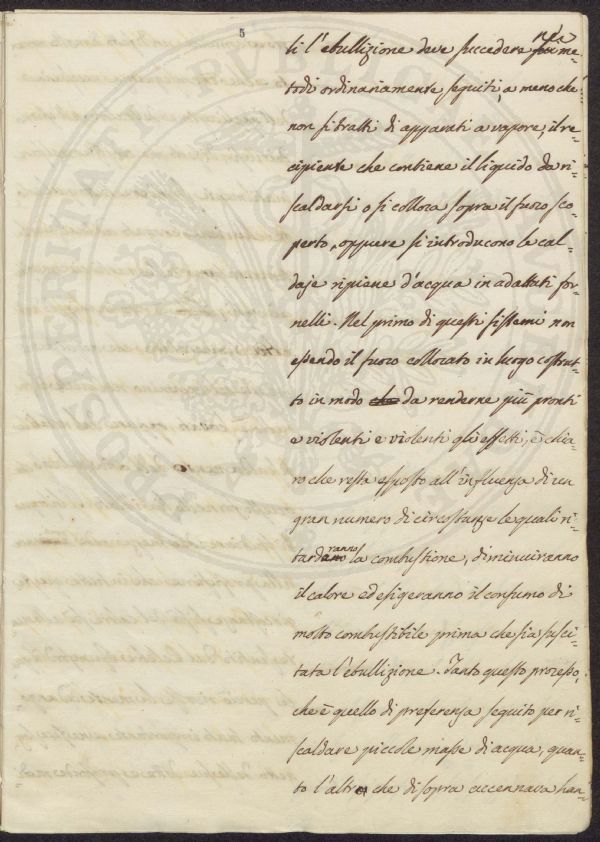 5
ne'
ti l'ebullizione deve succedere me=
todi ordinariamente seguiti, a meno chè
non si tratti di apparati a vapore, il re=
cipiente che contiene il liquido da ri=
scaldarsi o si colloca sopra il fuoco sco=
perto, oppure si introducono le cal=
daje ripiene d'acqua in adattati for=
nelli. Nel primo di questi sistemi non
essendo il fuoco collocato in luogo costrut=
to in modo che da renderne più pronti
e violenti e violenti gli effetti, è chia=
ro che resta esposto all'influenza di un
gran numero di circostanze le quali ri=
tardano ranno la combustione, diminuiranno
il calore ed esigeranno il consumo di
molto combustibile prima che sia susci=
tata l'ebullizione. Tanto questo processo,
che è quello di preferenza seguito per ri=
scaldare piccole masse di acqua, quan=
to l'altro che di sopra accennava han=